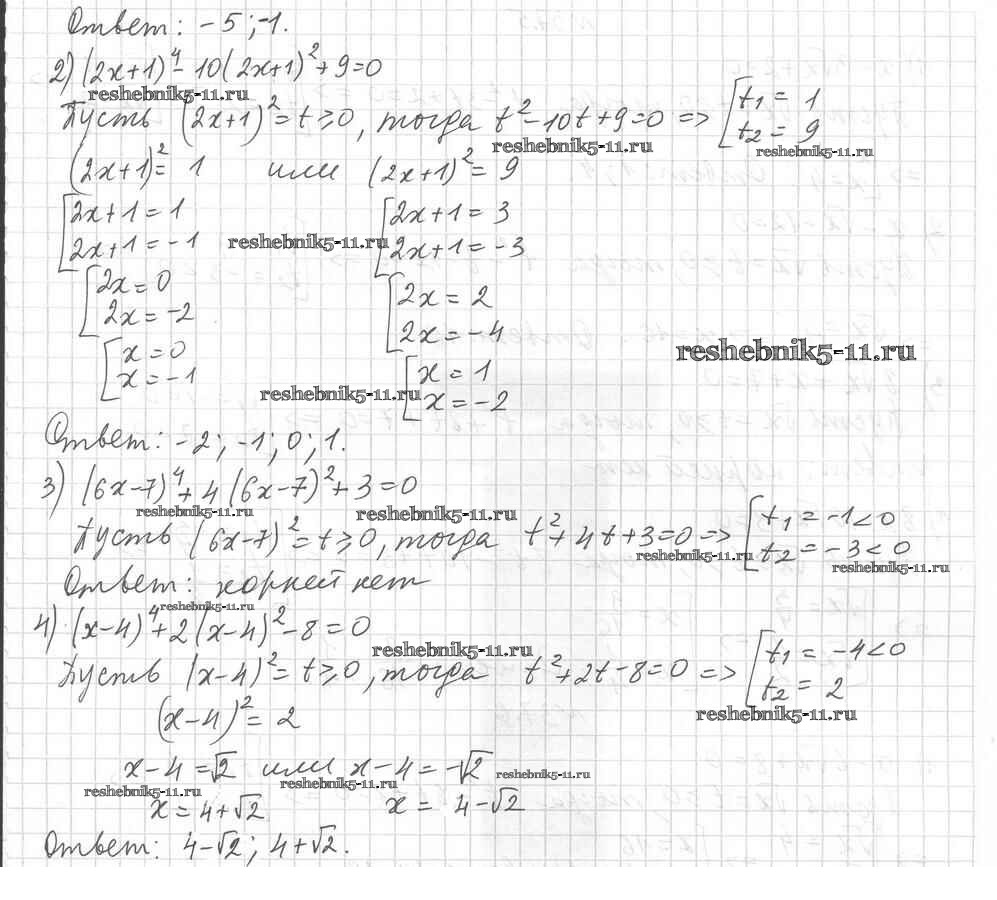 Ответ: -5; -1.
2) (2x+1)⁴ - 10(2x+1)² + 9 = 0
reshebnik5-11.ru
Пусть (2x+1)² = t ≥ 0, тогда t² - 10t + 9 = 0 => [ t₁ = 1
t₂ = 9
reshebnik5-11.ru
reshebnik5-11.ru
(2x+1)² = 1 или (2x+1)² = 9
[ 2x+1 = 1 [ 2x+1 = 3
2x+1 = -1 reshebnik5-11.ru 2x+1 = -3
[ 2x = 0 [ 2x = 2
2x = -2 2x = -4
reshebnik5-11.ru
[ x = 0 [ x = 1
x = -1 x = -2
reshebnik5-11.ru
Ответ: -2; -1; 0; 1.
3) (6x-7)⁴ + 4(6x-7)² + 3 = 0
reshebnik5-11.ru reshebnik5-11.ru
Пусть (6x-7)² = t ≥ 0, тогда t² + 4t + 3 = 0 => [ t₁ = -1 < 0
t₂ = -3 < 0
reshebnik5-11.ru reshebnik5-11.ru
Ответ: корней нет
reshebnik5-11.ru
4) (x-4)⁴ + 2(x-4)² - 8 = 0
reshebnik5-11.ru
Пусть (x-4)² = t ≥ 0, тогда t² + 2t - 8 = 0 => [ t₁ = -4 < 0
t₂ = 2
reshebnik5-11.ru
(x-4)² = 2
x-4 = √2 или x-4 = -√2 reshebnik5-11.ru
reshebnik5-11.ru reshebnik5-11.ru
x = 4+√2 x = 4-√2
Ответ: 4-√2; 4+√2.